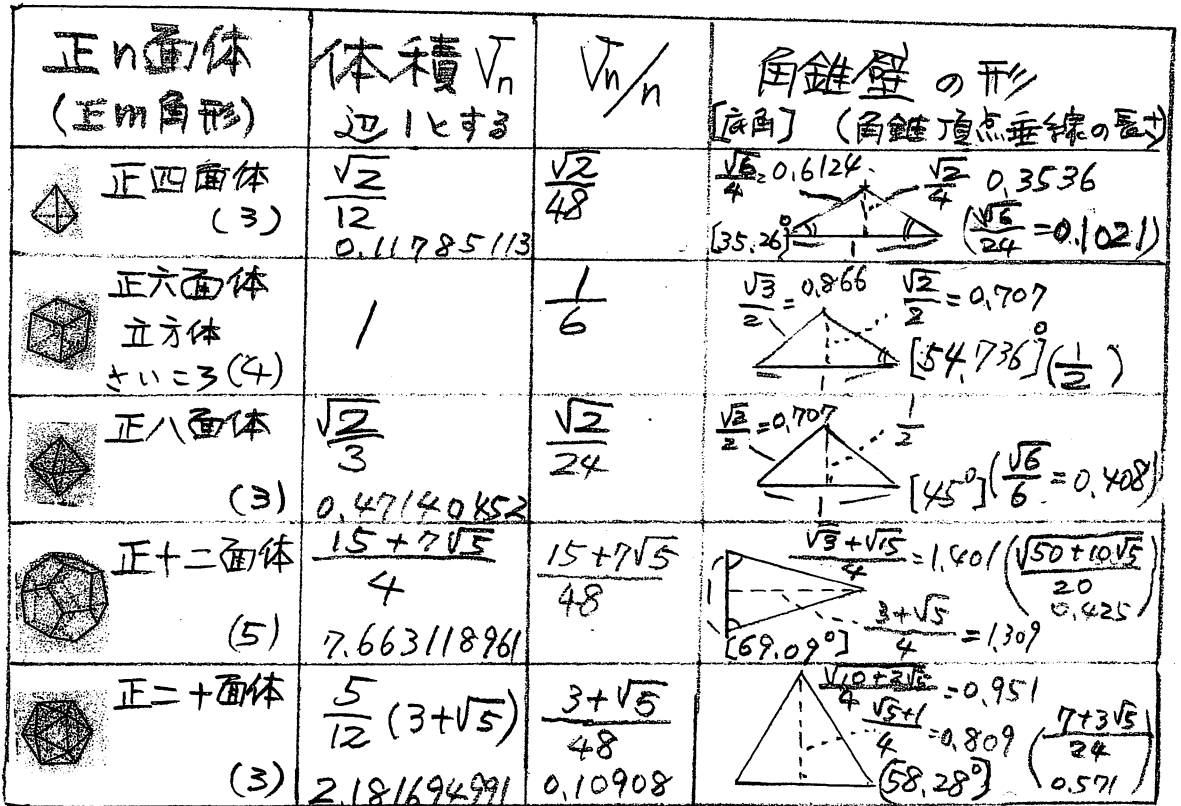 正n面体
(正m角形)
体積 Vn
辺1とする
Vn/n
角錐壁の形
[底角] (角錐頂点垂線の長さ)
正四面体
(3)
√2/12
0.11785113
√2/48
√6/4=0.6124
√2/4 0.3536
[35.26°]
1
(√6/24=0.1021)
正六面体
立方体
さいころ(4)
1
1/6
√3/2=0.866
√2/2=0.707
[54.736°]
(1/2)
1
正八面体
(3)
√2/3
0.47140452
√2/24
√2/2=0.707
1/2
1
[45°]
(√6/6=0.408)
正十二面体
(5)
(15+7√5)/4
7.663118961
(15+7√5)/48
1
(√3+√15)/4=1.401
(√(50+10√5)/20
0.425)
(3+√5)/4=1.309
[69.09°]
正二十面体
(3)
5/12(3+√5)
2.181694991
(3+√5)/48
0.10908
√(10+2√5)/4=0.951
(√5+1)/4=0.809
[58.28°]
((7+3√5)/24
0.571)